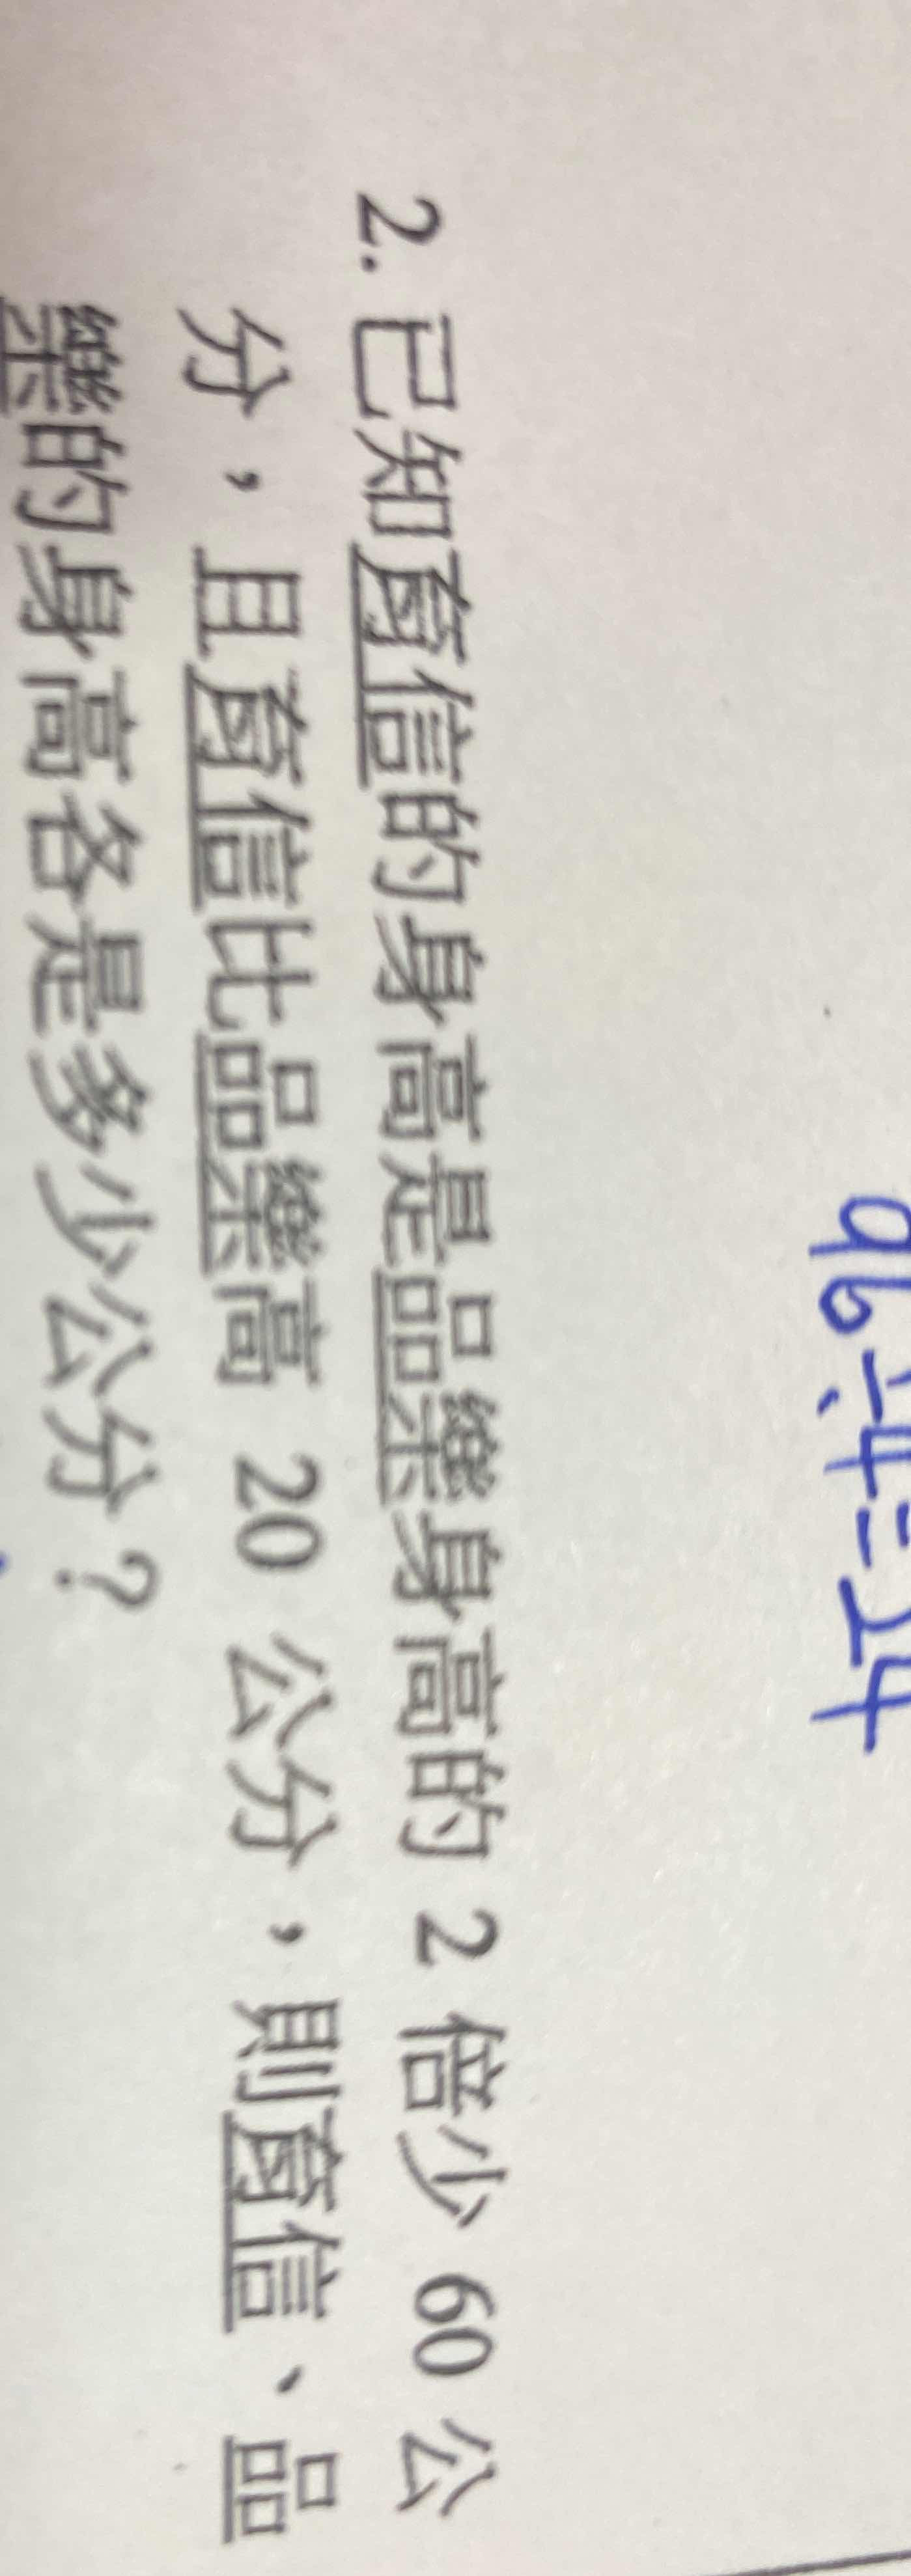 2. 已知奮信的身高是品樂身高的 2 倍少 60 公
分，且奮信比品樂高 20 公分，則奮信、品
樂的身高各是多少公分？